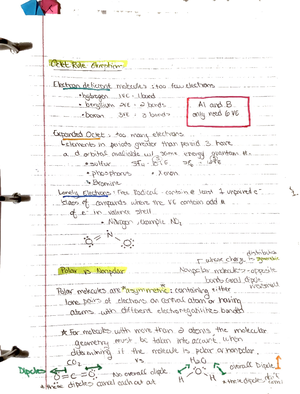 Octet Rule Exceptions
Electron deficient molecules: too few electrons
• hydrogen 1VE = 1 bond
• beryllium 2VE = 2 bonds
• boron 3VE = 3 bonds
Al and B
only need 6 VE
Expanded Octet: too many electrons
Elements in periods greater than period 3 have
a d orbital available w/ same energy quantum #.
• sulfur
• phosphorus • Xenon
• Bromine
Lonely electrons: Free Radical: contain at least 1 unpaired e⁻
class of compounds where the VE contain odd #
of e⁻ in valence shell
• Nitrogen, example NO₂
N
O O
1.
Polar vs Nonpolar
Nonpolar molecules = opposite
Polar molecules are *asymmetric*: containing either
lone pairs of electrons on central atom or having
atoms with different electronegativities bonded
* For molecules with more than 2 atoms the molecular
geometry must be taken into account when
determining if the molecule is polar or nonpolar.
CO₂ vs H₂O
Dipoles O=C=O No overall dipole H O H overall dipole
* these dipoles cancel each other out * these dipoles